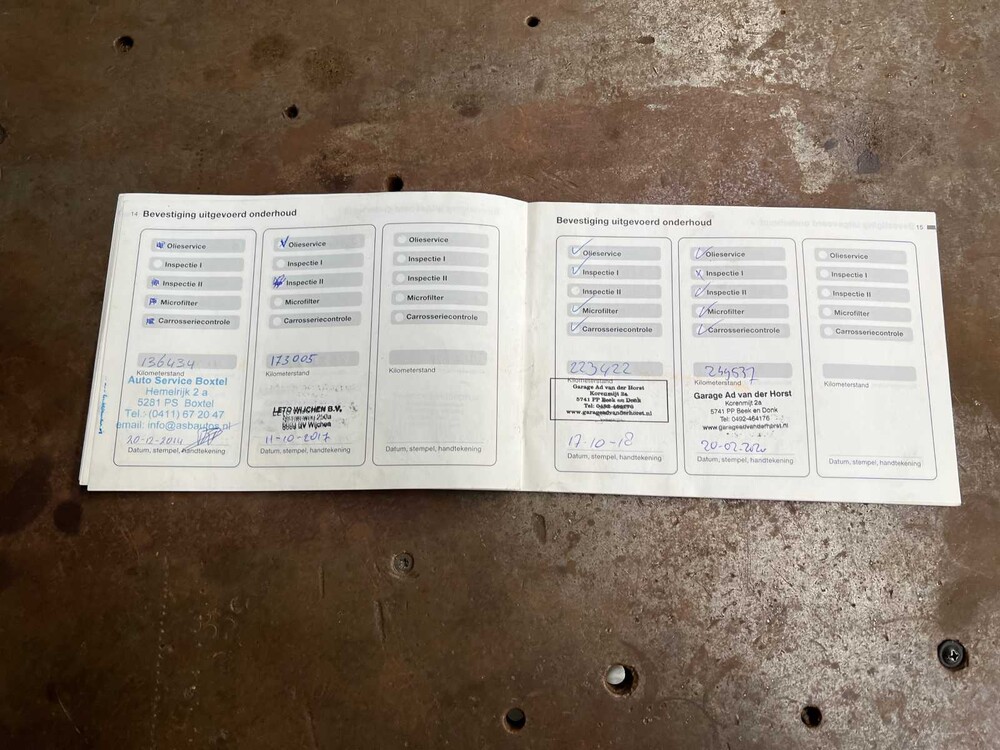 14 Bevestiging uitgevoerd onderhoud
Olieservice
Inspectie I
Inspectie II
Microfilter
Carrosseriecontrole
136434
Kilometerstand
Auto Service Boxtel
Hemelrijk 2 a
5281 PS Boxtel
Tel.: (0411) 67 20 47
email: info@asbautos.nl
20-12-2014
Datum, stempel, handtekening
Olieservice
Inspectie I
Inspectie II
Microfilter
Carrosseriecontrole
173005
Kilometerstand
LETO WIJCHEN B.V.
Wijchen
11-10-2017
Datum, stempel, handtekening
Olieservice
Inspectie I
Inspectie II
Microfilter
Carrosseriecontrole
Kilometerstand
Datum, stempel, handtekening
Bevestiging uitgevoerd onderhoud
15
Olieservice
Inspectie I
Inspectie II
Microfilter
Carrosseriecontrole
223422
Kilometerstand
Garage Ad van der Horst
Korenmijt 2a
5741 PP Beek en Donk
Tel:
www.garageadvanderhorst.nl
17-10-18
Datum, stempel, handtekening
Olieservice
Inspectie I
Inspectie II
Microfilter
Carrosseriecontrole
Kilometerstand
Garage Ad van der Horst
Korenmijt 2a
5741 PP Beek en Donk
Tel: 0492-464176
www.garageadvanderhorst.nl
20-02-2020
Datum, stempel, handtekening
Olieservice
Inspectie I
Inspectie II
Microfilter
Carrosseriecontrole
Kilometerstand
Datum, stempel, handtekening